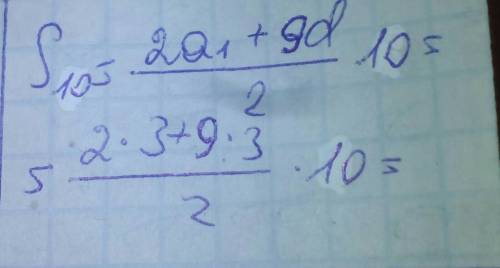 S₁₀ = (2a₁ + 9d)/2 · 10 =
= (2·3+9·3)/2 · 10 =